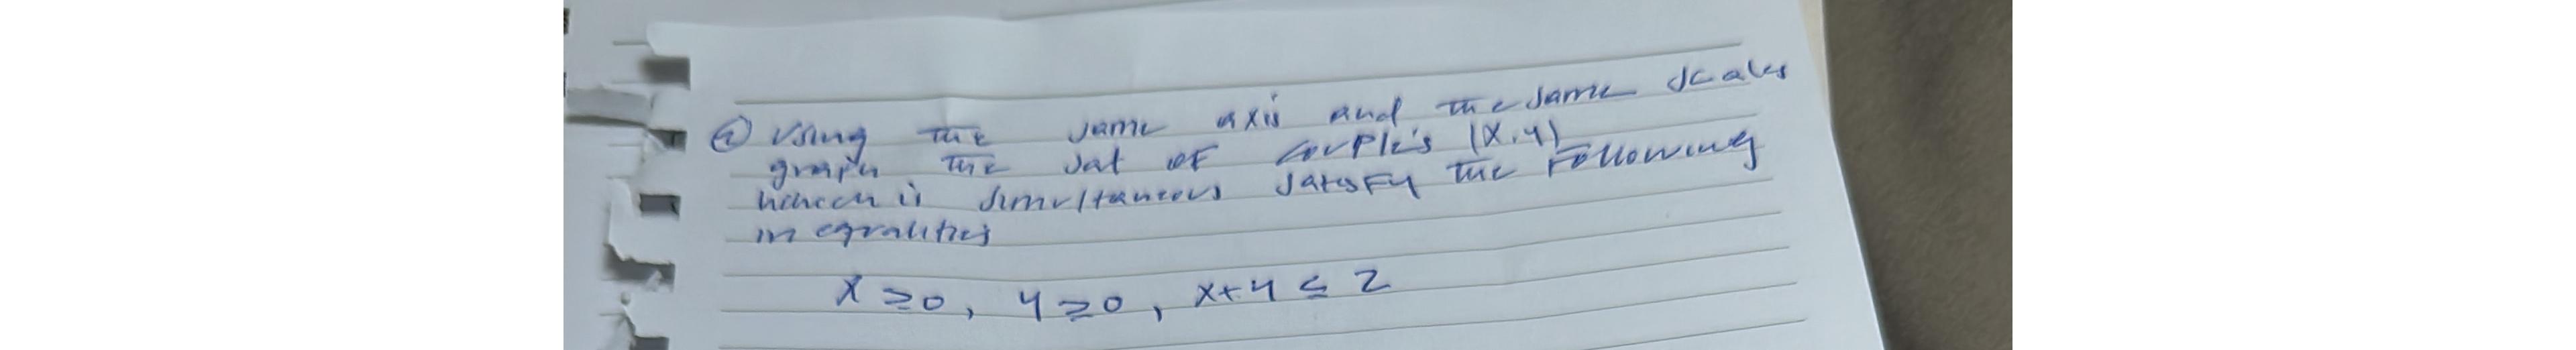 a) Using the same axis and the same scales
graph the sat of couple's (x,y)
simultaneous satisfy the following
inequalities
x ≥ 0, y ≥ 0, x+y ≤ 2